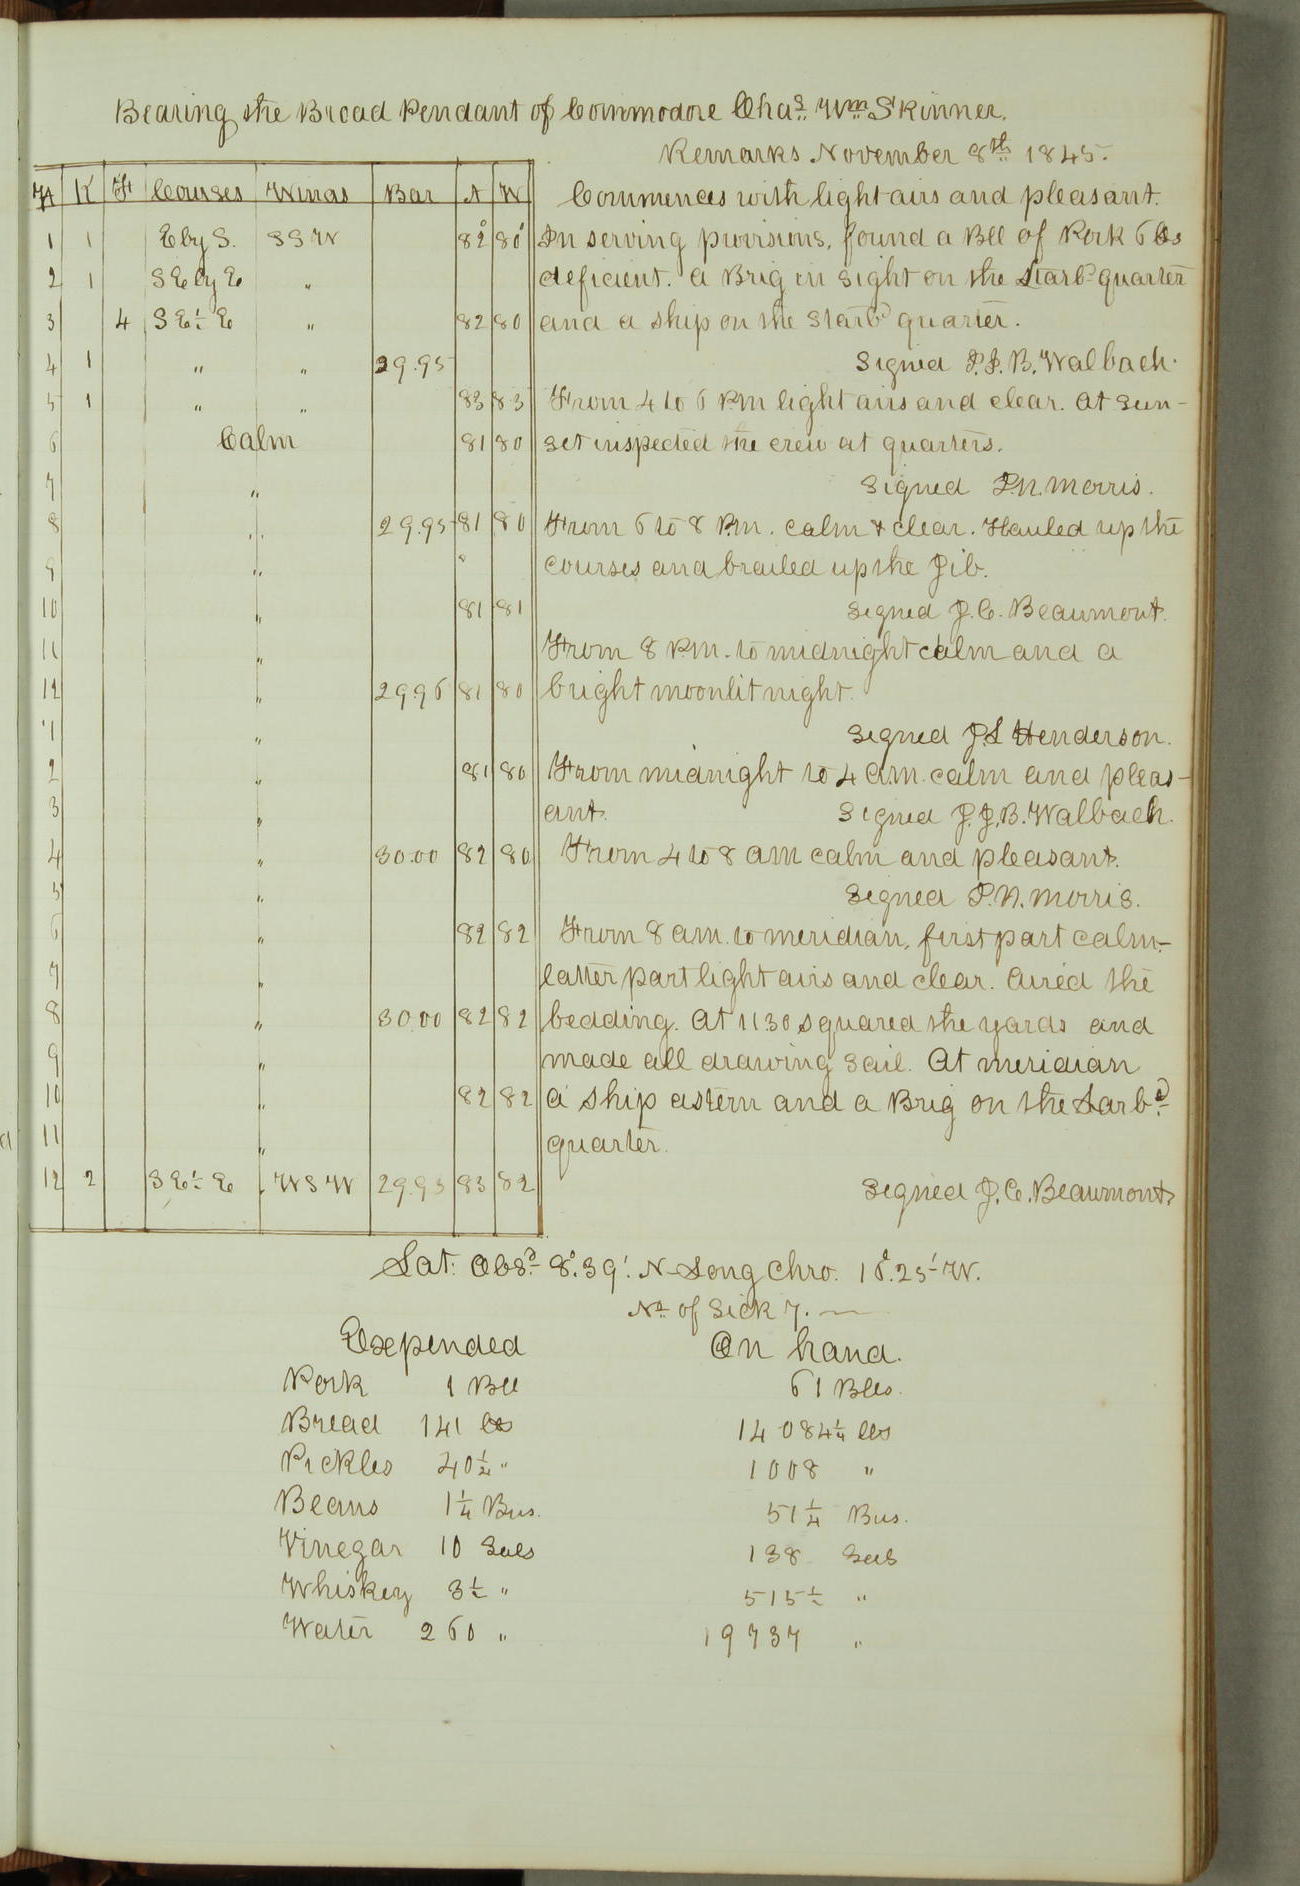 Bearing the Broad Pendant of Commodore Chas. Wm. Skinner.
Remarks November 8th 1845.
H K F Courses Winds Bar A W Commences with light airs and pleasant.
1 1 E by S. S S W 82° 80° In serving provisions, found a Bll of Pork 6 lbs
2 1 S E by E " deficient. A Brig in sight on the Starbd quarter
3 4 S E ½ E " 82 80 and a ship on the Starbd quarter.
4 1 " " 29.95 Signed J. J. B. Walbach.
5 1 " " 83 83 From 4 to 6 P.M light airs and clear. At Sun-
6 Calm 81 80 set inspected the crew at quarters.
7 " Signed P.N. Morris.
8 " 29.95 81 80 From 6 to 8 P.M. calm & clear. Hauled up the
9 " " courses and brailed up the Jib.
10 " 81 81 Signed J. C. Beaumont.
11 " From 8 P.M. to midnight calm and a
12 " 29.96 81 80 bright moonlit night.
1 " Signed J. L Henderson.
2 " 81 80 From midnight to 4 A.M. calm and pleas-
3 " ant. Signed J. J. B. Walbach.
4 " 30.00 82 80 From 4 to 8 AM calm and pleasant.
5 " Signed P. N. Morris.
6 " 82 82 From 8 A.M. to meridian, first part calm,-
7 " latter part light airs and clear. Aired the
8 " 30.00 82 82 bedding. At 11 30 squared the yards and
9 " made all drawing sail. At meridian
10 " 82 82 a ship astern and a Brig on the Larbd.
11 " quarter.
12 2 S E ½ E W S W 29.95 83 82 Signed J. C. Beaumont.
Lat: Obsd. 8°. 39'. N Long Chro. 18°. 25' W.
No. of Sick 7.
Expended On hand.
Pork 1 Bll 61 Blls.
Bread 141 lbs 14084¼ lbs
Pickles 40¼ " 1008 "
Beans 1¼ Bus. 51¼ Bus.
Vinegar 10 Gals 138 Gals
Whiskey 3½ " 515½ "
Water 260 " 19737 "